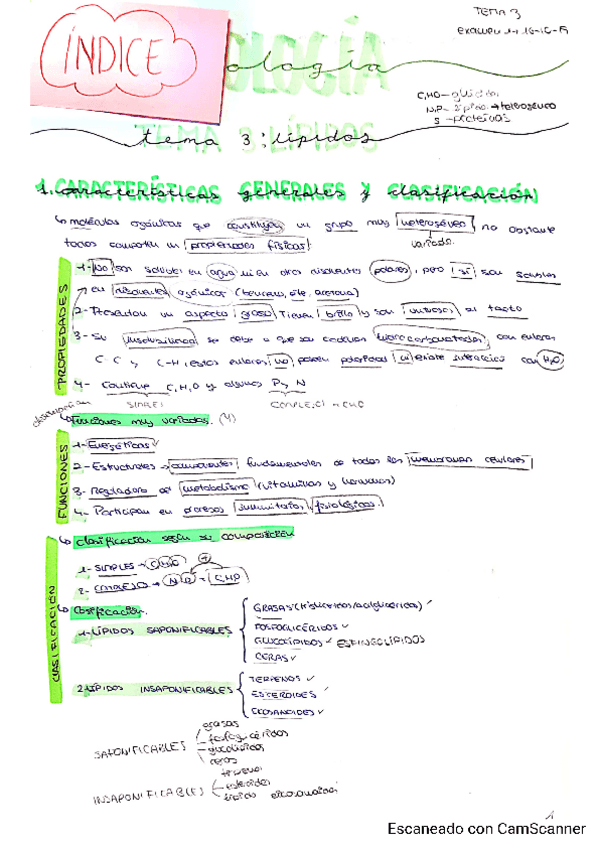 TEMA 3
ÍNDICE
ología
C,H,O - glúcidos
N,P - lípidos → heterogéneo
S - proteínas
tema 3: lípidos
1. características generales y clasificación
moléculas orgánicas que constituyen un grupo muy heterogéneo, no obstante
variado
todos comparten propiedades físicas:
PROPIEDADES
1- No son solubles en agua ni en otros disolventes polares, pero sí son solubles
en disolventes orgánicos (benceno, éter, acetona)
2- Presentan un aspecto graso. Tienen brillo y son untuosos al tacto
3- Su insolubilidad se debe a que cadenas hidrocarbonadas, con enlaces
C-C y C-H, estos enlaces no polaridad ni interacción con H2O
4- Contiene C,H,O y algunos P y N
SIMPLE
Funciones muy variadas (4)
FUNCIONES
1- Energéticas
2- Estructurales → componentes fundamentales de todas las membranas celulares
3- Reguladora del metabolismo (vitaminas y hormonas)
4- Participan en procesos inmunitarios, fisiológicos.
CLASIFICACIÓN
Clasificación según su composición
1- SIMPLES → CHO
2- COMPLEJOS → N P + CHO
Clasificación.
1-LÍPIDOS SAPONIFICABLES
GRASAS ✓
FOSFOGLICÉRIDOS ✓
GLUCOLÍPIDOS ✓ ESFINGOLÍPIDOS
CERAS ✓
2-LÍPIDOS INSAPONIFICABLES
TERPENOS ✓
ESTEROIDES ✓
ECOSANOIDES ✓
SAPONIFICABLES
grasas
fosfoglicéridos
glucolípidos
ceras
INSAPONIFICABLES
terpenos
esteroides
1
Escaneado con CamScanner